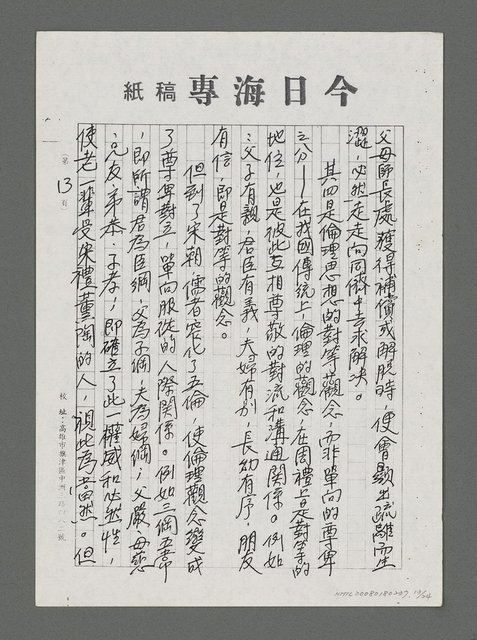 今日海專 稿紙
父母師長處獲得補償或解脫時，便會顯出疏離而生
澀，必然走向同儕中去求解決。
其四是倫理思想的對等觀念，而非單向的尊卑
之分—在我國傳統上，倫理的觀念，在周禮上是對等的
地位，也是彼此互相尊敬的對流和溝通關係。例如
：父子有親，君臣有義，夫婦有別，長幼有序，朋友
有信，即是對等的觀念。
但到了宋朝，儒者窄化了五倫，使倫理觀念變成
了尊卑對立，單向服從的人際關係。例如三綱五常
，即所謂君為臣綱，父為子綱，夫為婦綱；父嚴、母慈
、兄友、弟恭、子孝，即確立了此一權威和必然性，
使老一輩受宋禮薰陶的人，視此為當然。但
（第13頁）
校址：高雄市旗津區中洲三路四八二號
NMTL20080180247, 13/24